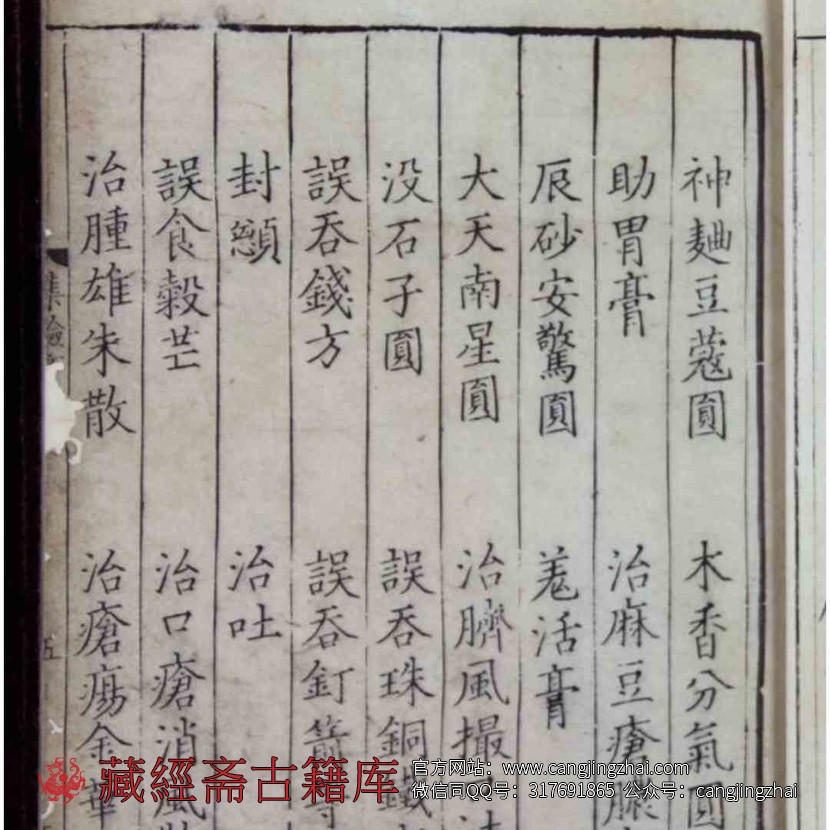 神麯豆蔻圓　木香分氣圓
助胃膏　治麻豆瘡
辰砂安驚圓　羗活膏
大天南星圓　治臍風撮
没石子圓　誤吞珠銅鐵
誤吞錢方　誤吞釘箭
封顖　治吐
誤食穀芒　治口瘡消風
治腫雄朱散　治瘡瘍金華
集驗
五
藏經斋古籍库
官方网站：www.cangjingzhai.com
微信同QQ号：317691865 公众号：cangjingzhai